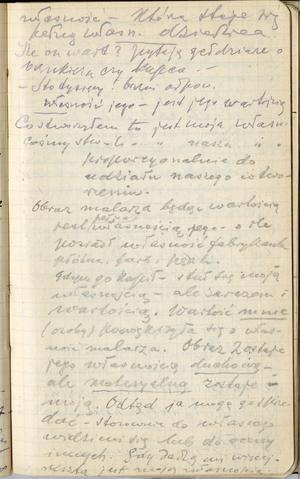 własność – która staje się
pełną własn. dziedzica
Ile on wart? pytają giełdziarze o
bankierza czy kupca –
– Sto tysięcy! brzmi odpow.
własność jego – jest jego wartością
Co stworzyłem to jest moja własn.
cośmy stw – to " nasza i "
proporcyonalnie do
udziału naszego w two-
rzeniu.
Obraz malarza będąc wartością
jest pełną własnością jego – o ile
posiadł własność fabrykanta
płótna, farb i pędzli.
Gdym go kupił – stał się moją
własnością – ale zarazem i
wartością. Wartość mnie
(osoby) powiększyła się o włas-
ność malarza. Obraz zostaje
jego własnością duchową –
ale materyalną zostaje –
moją. Odtąd ja mogę go skre-
dać – stosownie do własnego
widzi mi się lub do oceny
innych. Gdy
jest moją własnością.